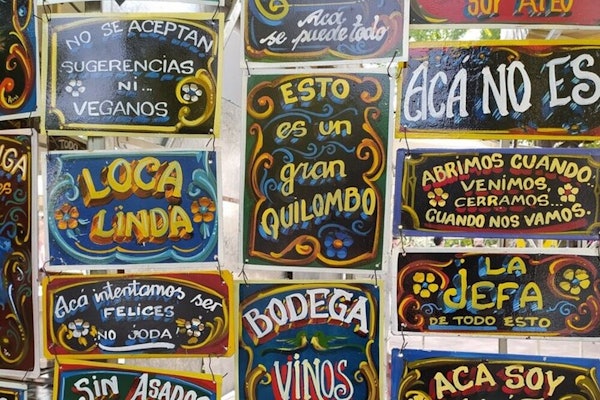 NO SE ACEPTAN
SUGERENCIAS
NI...
VEGANOS
Acá
se puede todo
SOY ATEO
ESTO
es un
gran
QUILOMBO
ACA NO ES
LOCA
LINDA
ABRIMOS CUANDO...
VENIMOS,
CERRAMOS...
CUANDO NOS VAMOS.
Aca intentamos ser
FELICES
NO JODA
LA
JEFA
DE TODO ESTO
BODEGA
VINOS
SIN ASADO
ACA SOY